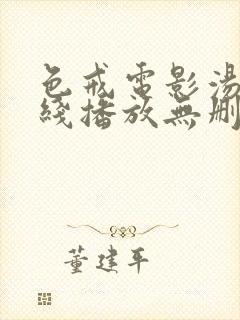 色戒電影湯
綫播放無刪
董建平